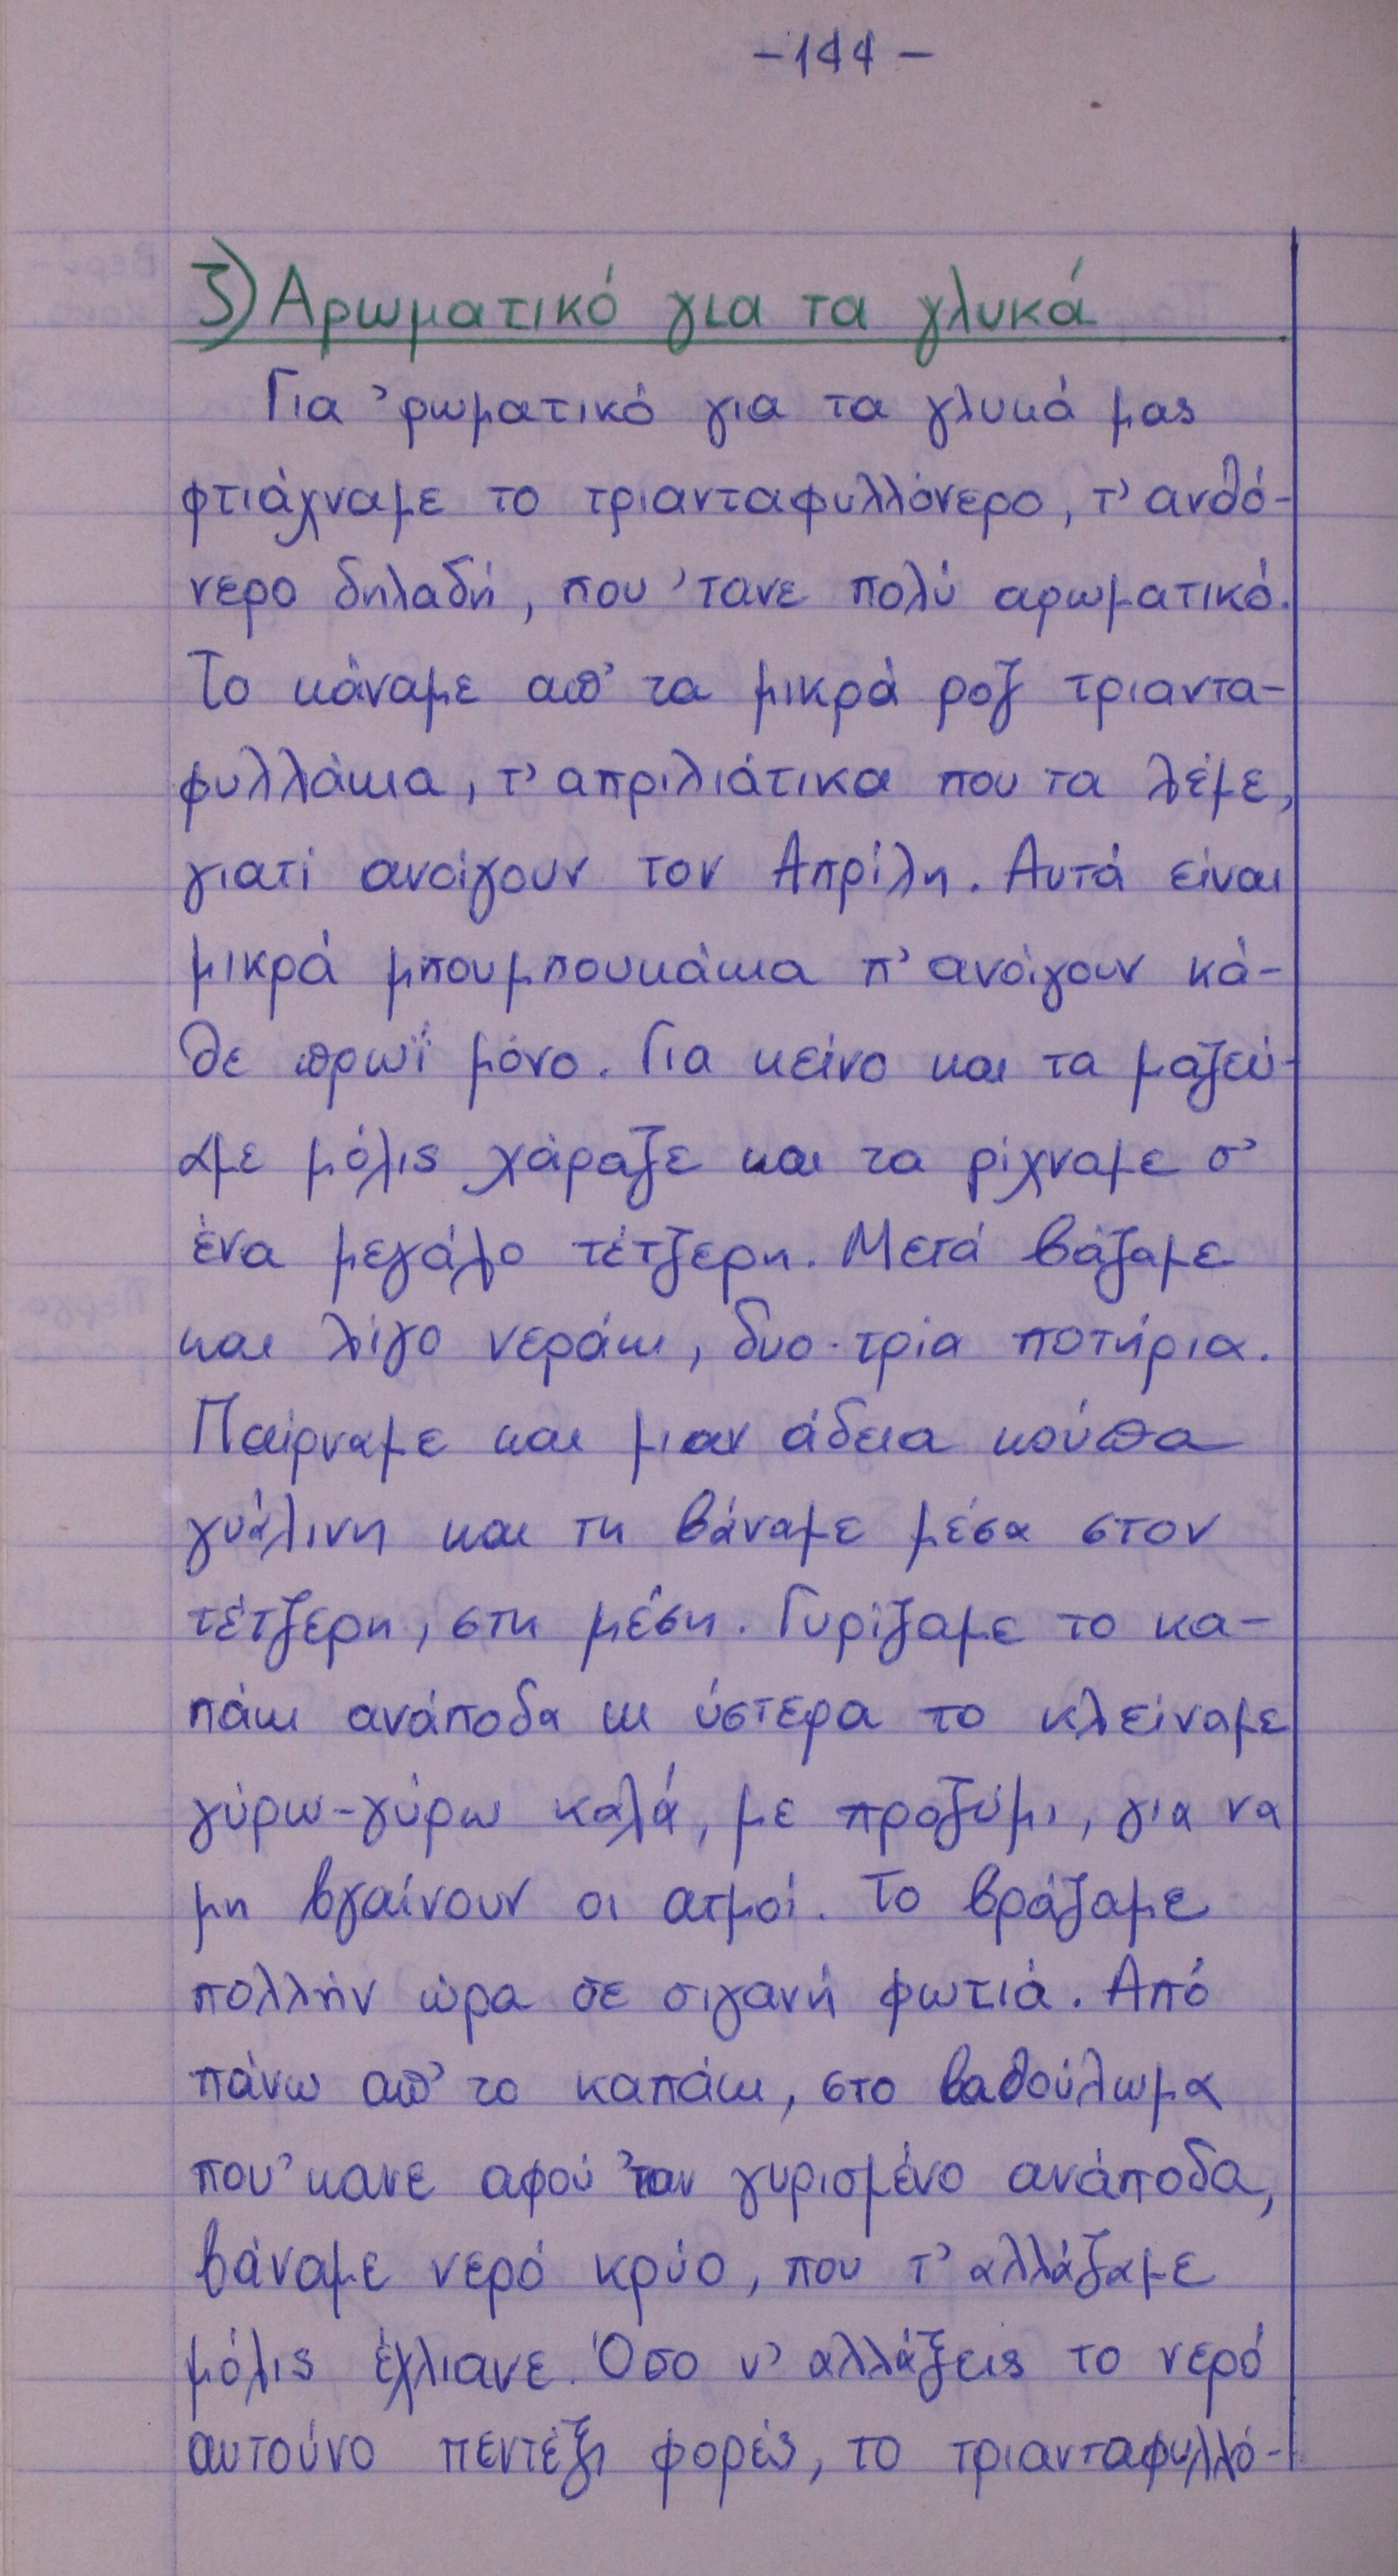 -144-
3) Αρωματικό για τα γλυκά
Για 'ρωματικό για τα γλυκά μας
φτιάχναμε το τριανταφυλλόνερο, τ' ανθό-
νερο δηλαδή, που 'τανε πολύ αρωματικό.
Το κάναμε απ' τα μικρά ροζ τριαντα-
φυλλάκια, τ' απριλιάτικα που τα λέμε,
γιατί ανοίγουν τον Απρίλη. Αυτά είναι
μικρά μπουμπουκάκια π' ανοίγουν κά-
θε πρωΐ μόνο. Για κείνο και τα μαζεύ-
αμε μόλις χάραζε και τα ρίχναμε σ'
ένα μεγάλο τέτζερη. Μετά βάζαμε
και λίγο νεράκι, δυο-τρία ποτήρια.
Παίρναμε και μιαν άδεια κούπα
γυάλινη και τη βάναμε μέσα στον
τέτζερη, στη μέση. Γυρίζαμε το κα-
πάκι ανάποδα κι ύστερα το κλείναμε
γύρω-γύρω καλά, με προζύμι, για να
μη βγαίνουν οι ατμοί. Το βράζαμε
πολλήν ώρα σε σιγανή φωτιά. Από
πάνω απ' το καπάκι, στο βαθούλωμα
που 'κανε αφού 'ταν γυρισμένο ανάποδα,
βάναμε νερό κρύο, που τ' αλλάζαμε
μόλις έχλιανε. Όσο ν' αλλάξεις το νερό
αυτούνο πεντέξι φορές, το τριανταφυλλό-